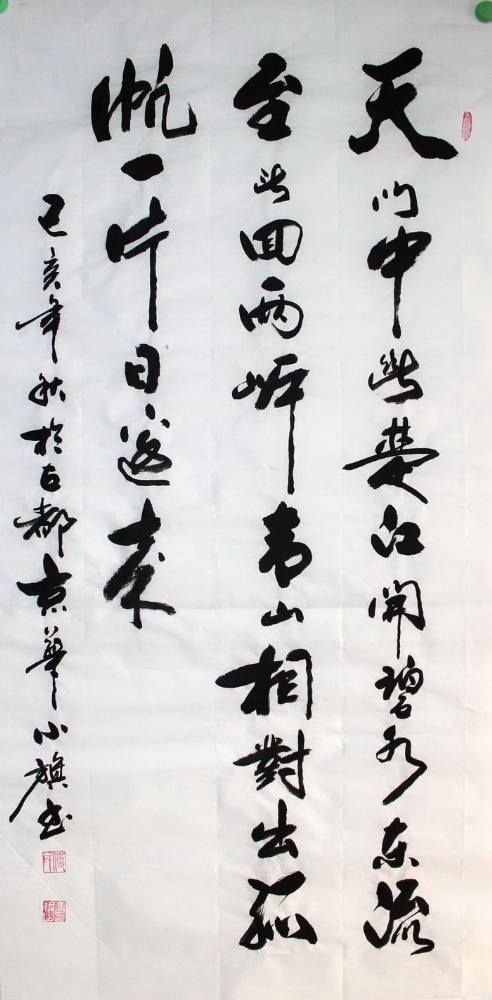 天门中断楚江開碧水东流
至此回两岸青山相對出孤
帆一片日边来
己亥年秋於古都京華小旗书